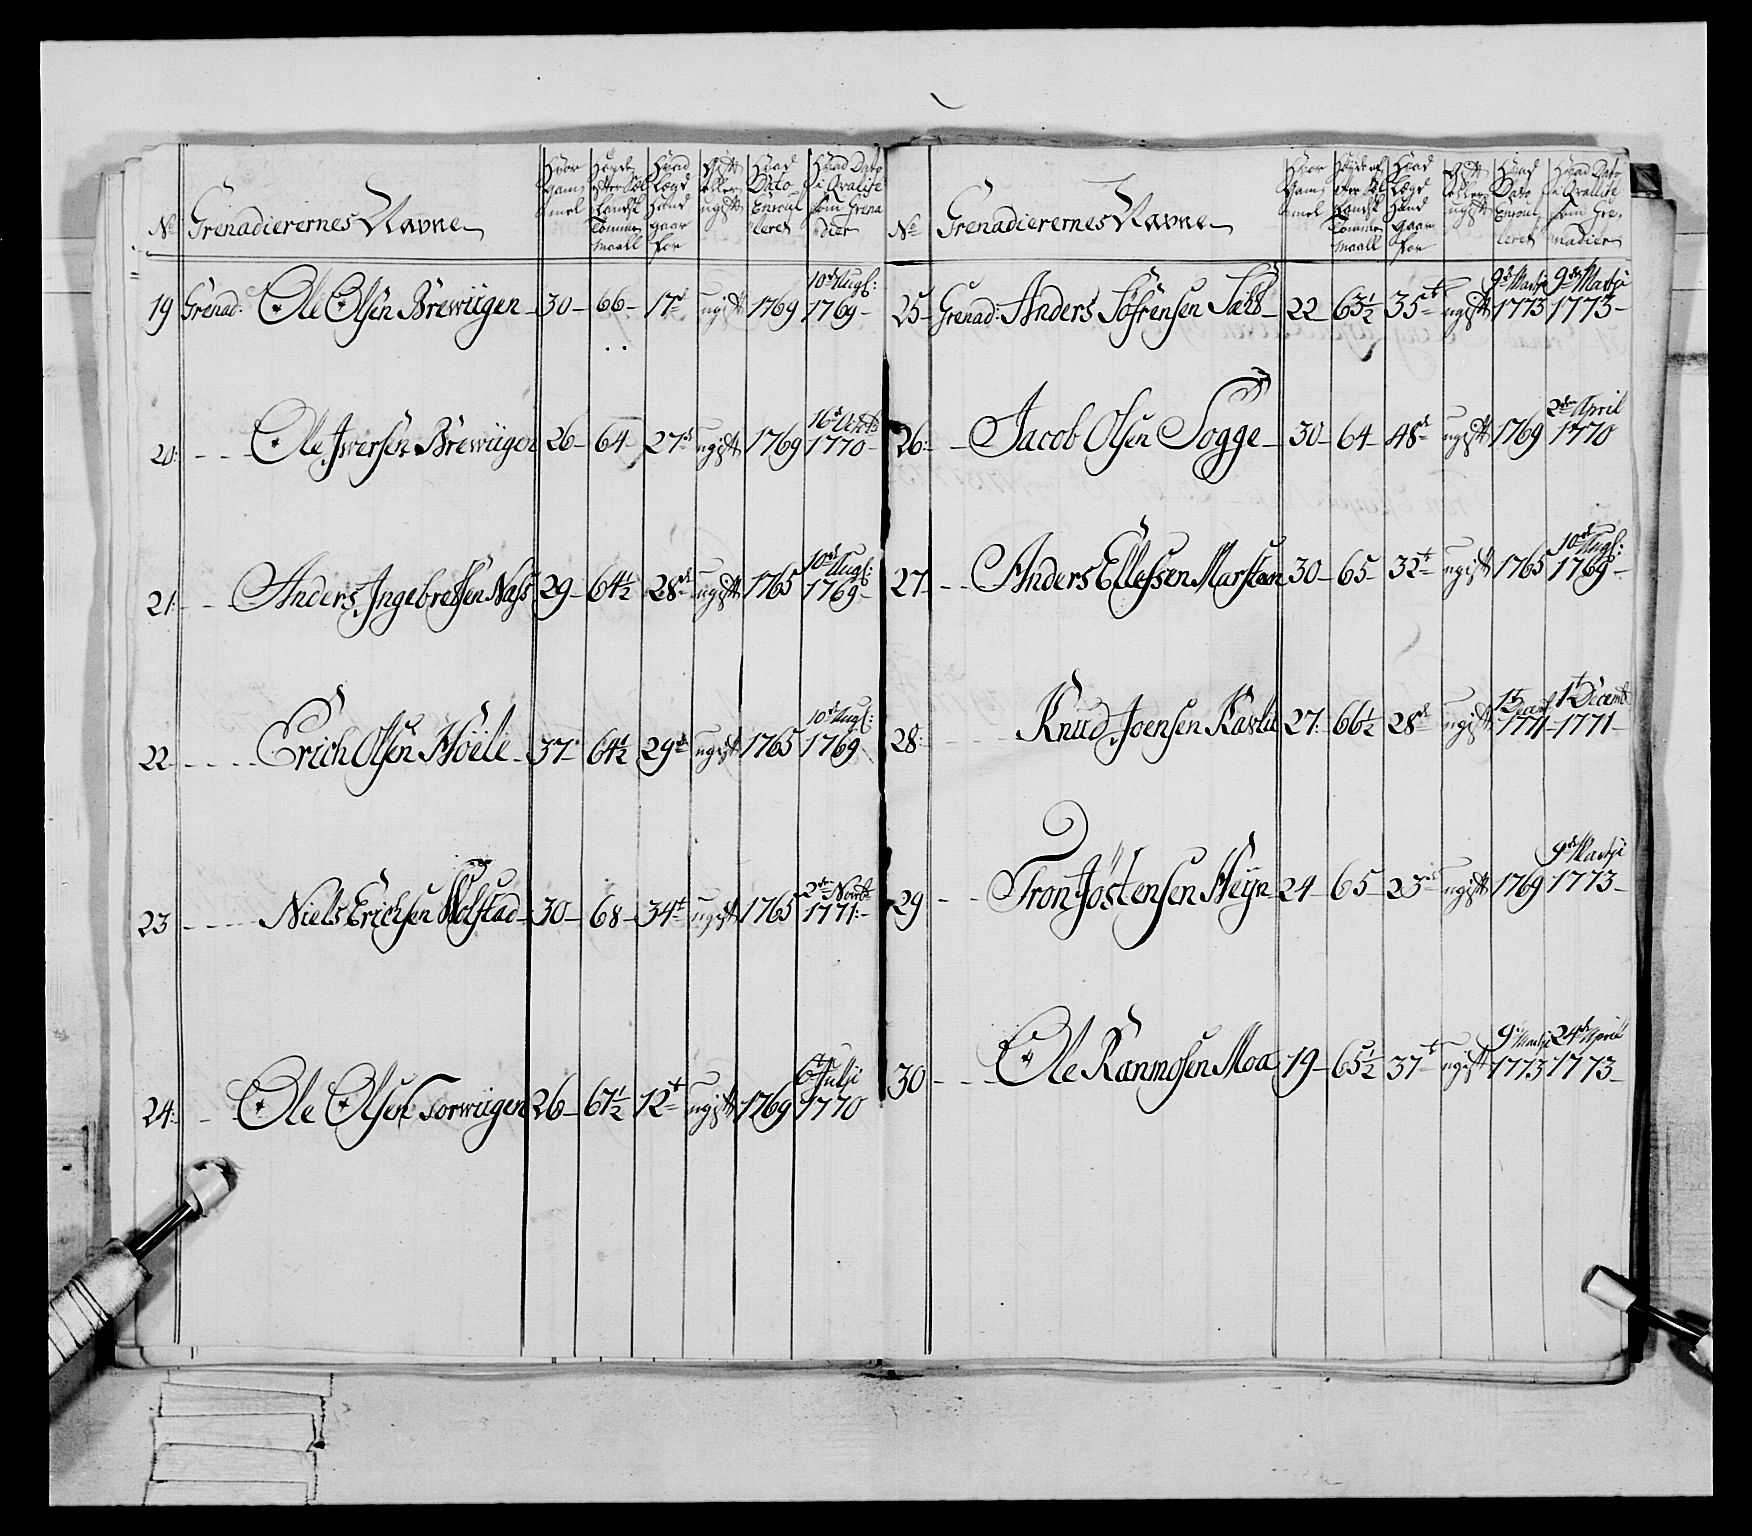 No Grenadierernes Navne Hvor Gam̃el Høyde efter Sæl Landsk Tommer Maall Hvad Lægd Hand gaar for Gift eller ugift Hvad Dato Enroulleret Hvad Dato i Qvalite som Grenadier
19 Grenad: Ole Olsen Brewiigen 30 66 17de ugift 1769 10de Augs: 1769
20 Ole Iversen Brewiigen 26 64 27de ugift 1769 16de 1770
21 Anders Ingebretsen Næss 29 64½ 28de ugift 1765 10de Augs: 1769
22 Erich Olsen 37 64½ 29de ugift 1765 10de Augs: 1769
23 Niels Erichsen 30 68 34te ugift 1765 2den Novbr 1771
24 Ole Olsen Torwiigen 26 67½ 12te ugift 1769 6te Julji 1770
No Grenadierernes Navne Hvor Gam̃el Høyde efter Sæl Landsk Tommer Maall Hvad Lægd Hand gaar for Gift eller ugift Hvad Dato Enroulleret Hvad Dato i Qvalite som Grenadier
25 Grenad: Anders Søfrensen Sæbb 22 63½ 35te ugift 9de Martji 1773 9de Martji 1773
26 Jacob Olsen Sogge 30 64 48de ugift 1769 2den April 1770
27 Anders Ellefssen Marstein 30 65 32te ugift 1765 10de Augs: 1769
28 Knud Joensen Kavlie 27 66½ 28de ugift 1t Decemb 1771 1t Decemb 1771
29 Tron Jøstensen 24 65 23de ugift 1769 9de Martji 1773
30 Ole Rasmosen Moa 19 65½ 37te ugift 9de Martji 1773 24de April 1773